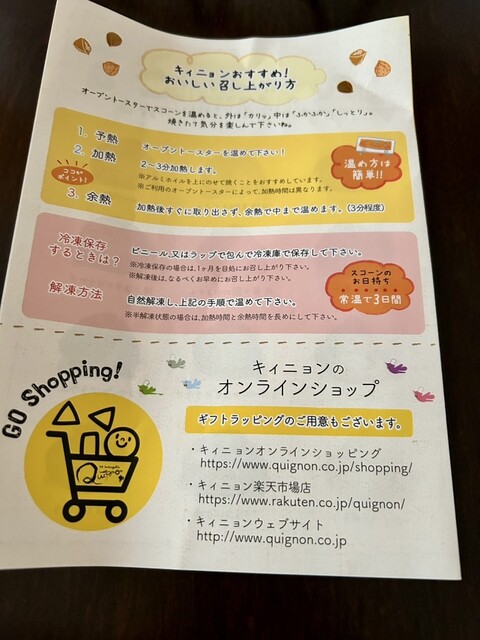 キィニョンおすすめ!
おいしい召し上がり方
オーブントースターでスコーンを温めると、外は「カリッ」中は「ふかふか」「しっとり」。
焼きたて気分を楽しんで下さいね。
1. 予熱 オーブントースターを温めて下さい!
2. 加熱 2~3分加熱します。
※アルミホイルを上にのせて焼くことをおすすめしています。
※ご利用のオーブントースターによって、加熱時間は異なります。
ココがポイント!
3. 余熱 加熱後すぐに取り出さず、余熱で中まで温めます。(3分程度)
温め方は
簡単!!
冷凍保存
するときは?
ビニール、又はラップで包んで冷凍庫で保存して下さい。
※冷凍保存の場合は、1ヶ月を目処にお召し上がり下さい。
※解凍後は、なるべくお早めにお召し上がり下さい。
解凍方法
自然解凍し、上記の手順で温めて下さい。
※半解凍状態の場合は、加熱時間と余熱時間を長めにして下さい。
スコーンの
お日持ち
常温で3日間
GO Shopping!
Quignon
キィニョンの
オンラインショップ
ギフトラッピングのご用意もございます。
・キィニョンオンラインショッピング
https://www.quignon.co.jp/shopping/
・キィニョン楽天市場店
https://www.rakuten.co.jp/quignon/
・キィニョンウェブサイト
http://www.quignon.co.jp